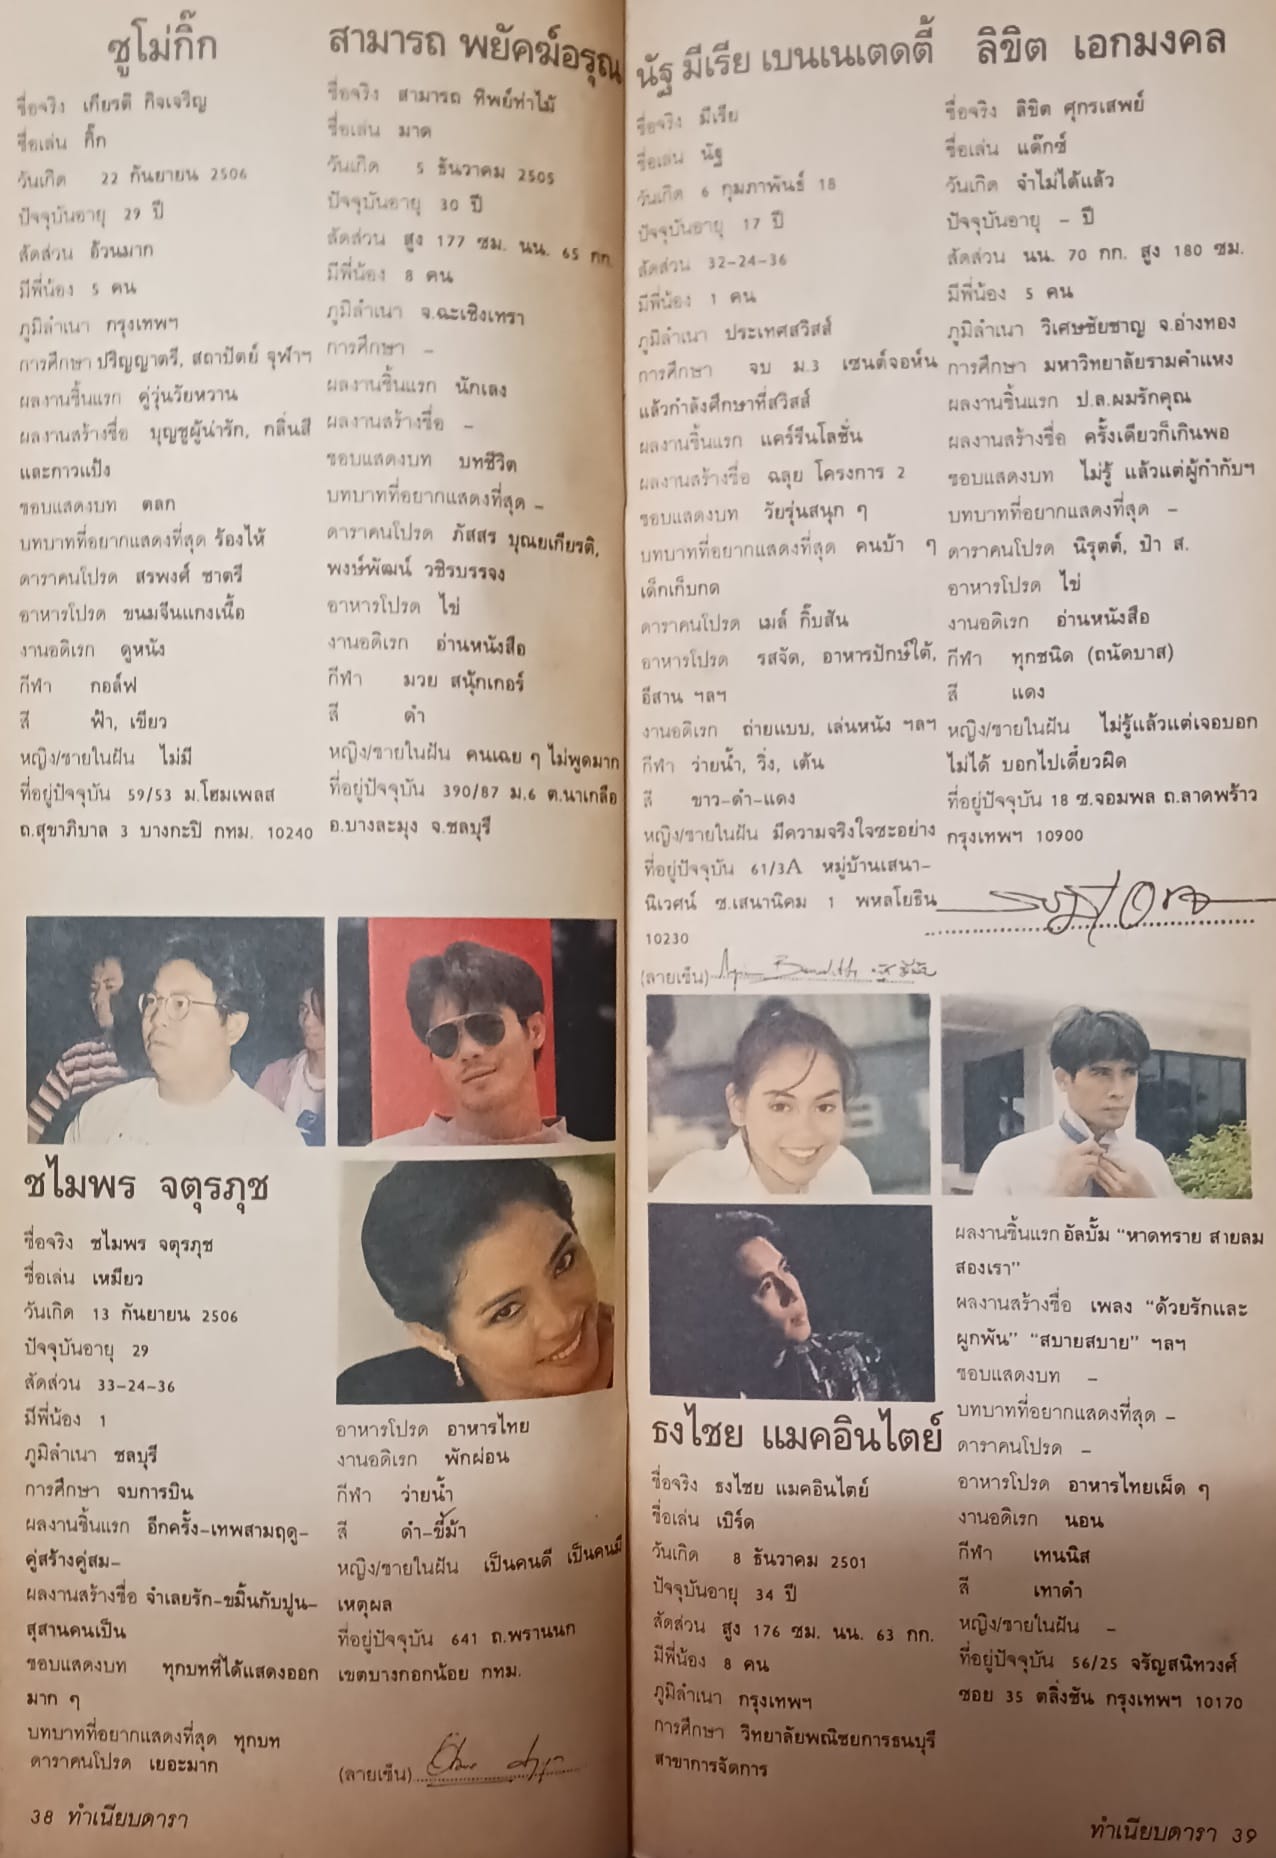 ซูโม่กิ๊ก
ชื่อจริง เกียรติ กิจเจริญ
ชื่อเล่น กิ๊ก
วันเกิด 22 กันยายน 2506
ปัจจุบันอายุ 29 ปี
สัดส่วน อ้วนมาก
มีพี่น้อง 5 คน
ภูมิลำเนา กรุงเทพฯ
การศึกษา ปริญญาตรี, สถาปัตย์ จุฬาฯ
ผลงานชิ้นแรก คู่วุ่นวัยหวาน
ผลงานสร้างชื่อ บุญชูผู้น่ารัก, กลิ่นสี
และกาวแป้ง
ชอบแสดงบท ตลก
บทบาทที่อยากแสดงที่สุด ร้องไห้
ดาราคนโปรด สรพงศ์ ชาตรี
อาหารโปรด ขนมจีนแกงเนื้อ
งานอดิเรก ดูหนัง
กีฬา กอล์ฟ
สี ฟ้า, เขียว
หญิง/ชายในฝัน ไม่มี
ที่อยู่ปัจจุบัน 59/53 ม.โฮมเพลส
ถ.สุขาภิบาล 3 บางกะปิ กทม. 10240
สามารถ พยัคฆ์อรุณ
ชื่อจริง สามารถ ทิพย์ท่าไม้
ชื่อเล่น มาด
วันเกิด 5 ธันวาคม 2505
ปัจจุบันอายุ 30 ปี
สัดส่วน สูง 177 ซม. นน. 65 กก.
มีพี่น้อง 8 คน
ภูมิลำเนา จ.ฉะเชิงเทรา
การศึกษา –
ผลงานชิ้นแรก นักเลง
ผลงานสร้างชื่อ –
ชอบแสดงบท บทชีวิต
บทบาทที่อยากแสดงที่สุด –
ดาราคนโปรด ภัสสร บุณยเกียรติ,
พงษ์พัฒน์ วชิรบรรจง
อาหารโปรด ไข่
งานอดิเรก อ่านหนังสือ
กีฬา มวย สนุ้กเกอร์
สี ดำ
หญิง/ชายในฝัน คนเฉย ๆ ไม่พูดมาก
ที่อยู่ปัจจุบัน 390/87 ม.6 ต.นาเกลือ
อ.บางละมุง จ.ชลบุรี
ชไมพร จตุรภุช
ชื่อจริง ชไมพร จตุรภุช
ชื่อเล่น เหมียว
วันเกิด 13 กันยายน 2506
ปัจจุบันอายุ 29
สัดส่วน 33-24-36
มีพี่น้อง 1
ภูมิลำเนา ชลบุรี
การศึกษา จบการบิน
ผลงานชิ้นแรก อีกครั้ง-เทพสามฤดู-
คู่สร้างคู่สม-
ผลงานสร้างชื่อ จำเลยรัก-ขมิ้นกับปูน-
สุสานคนเป็น
ชอบแสดงบท ทุกบทที่ได้แสดงออก
มาก ๆ
บทบาทที่อยากแสดงที่สุด ทุกบท
ดาราคนโปรด เยอะมาก
อาหารโปรด อาหารไทย
งานอดิเรก พักผ่อน
กีฬา ว่ายน้ำ
สี ดำ-ขี้ม้า
หญิง/ชายในฝัน เป็นคนดี เป็นคนมี
เหตุผล
ที่อยู่ปัจจุบัน 641 ถ.พรานนก
เขตบางกอกน้อย กทม.
(ลายเซ็น)
38 ทำเนียบดารา
นัฐ มีเรีย เบนเนเดดตี้
ชื่อจริง มีเรีย
ชื่อเล่น นัฐ
วันเกิด 6 กุมภาพันธ์ 18
ปัจจุบันอายุ 17 ปี
สัดส่วน 32-24-36
มีพี่น้อง 1 คน
ภูมิลำเนา ประเทศสวิสส์
การศึกษา จบ ม.3 เซนต์จอห์น
แล้วกำลังศึกษาที่สวิสส์
ผลงานชิ้นแรก แคร์รีนโลชั่น
ผลงานสร้างชื่อ ฉลุย โครงการ 2
ชอบแสดงบท วัยรุ่นสนุก ๆ
บทบาทที่อยากแสดงที่สุด คนบ้า ๆ
เด็กเก็บกด
ดาราคนโปรด เมล์ กิ๊บสัน
อาหารโปรด รสจัด, อาหารปักษ์ใต้,
อีสาน ฯลฯ
งานอดิเรก ถ่ายแบบ, เล่นหนัง ฯลฯ
กีฬา ว่ายน้ำ, วิ่ง, เต้น
สี ขาว-ดำ-แดง
หญิง/ชายในฝัน มีความจริงใจซะอย่าง
ที่อยู่ปัจจุบัน 61/3A หมู่บ้านเสนา-
นิเวศน์ ซ.เสนานิคม 1 พหลโยธิน
10230
(ลายเซ็น)
ลิขิต เอกมงคล
ชื่อจริง ลิขิต ศุกรเสพย์
ชื่อเล่น แด๊กซ์
วันเกิด จำไม่ได้แล้ว
ปัจจุบันอายุ – ปี
สัดส่วน นน. 70 กก. สูง 180 ซม.
มีพี่น้อง 5 คน
ภูมิลำเนา วิเศษชัยชาญ จ.อ่างทอง
การศึกษา มหาวิทยาลัยรามคำแหง
ผลงานชิ้นแรก ป.ล.ผมรักคุณ
ผลงานสร้างชื่อ ครั้งเดียวก็เกินพอ
ชอบแสดงบท ไม่รู้ แล้วแต่ผู้กำกับฯ
บทบาทที่อยากแสดงที่สุด –
ดาราคนโปรด นิรุตต์, ป๋า ส.
อาหารโปรด ไข่
งานอดิเรก อ่านหนังสือ
กีฬา ทุกชนิด (ถนัดบาส)
สี แดง
หญิง/ชายในฝัน ไม่รู้แล้วแต่เจอบอก
ไม่ได้ บอกไปเดี๋ยวผิด
ที่อยู่ปัจจุบัน 18 ซ.จอมพล ถ.ลาดพร้าว
กรุงเทพฯ 10900
ธงไชย แมคอินไตย์
ชื่อจริง ธงไชย แมคอินไตย์
ชื่อเล่น เบิร์ด
วันเกิด 8 ธันวาคม 2501
ปัจจุบันอายุ 34 ปี
สัดส่วน สูง 176 ซม. นน. 63 กก.
มีพี่น้อง 8 คน
ภูมิลำเนา กรุงเทพฯ
การศึกษา วิทยาลัยพณิชยการธนบุรี
สาขาการจัดการ
ผลงานชิ้นแรก อัลบั้ม “หาดทราย สายลม
สองเรา”
ผลงานสร้างชื่อ เพลง “ด้วยรักและ
ผูกพัน” “สบายสบาย” ฯลฯ
ชอบแสดงบท –
บทบาทที่อยากแสดงที่สุด –
ดาราคนโปรด –
อาหารโปรด อาหารไทยเผ็ด ๆ
งานอดิเรก นอน
กีฬา เทนนิส
สี เทาดำ
หญิง/ชายในฝัน –
ที่อยู่ปัจจุบัน 56/25 จรัญสนิทวงศ์
ซอย 35 ตลิ่งชัน กรุงเทพฯ 10170
ทำเนียบดารา 39